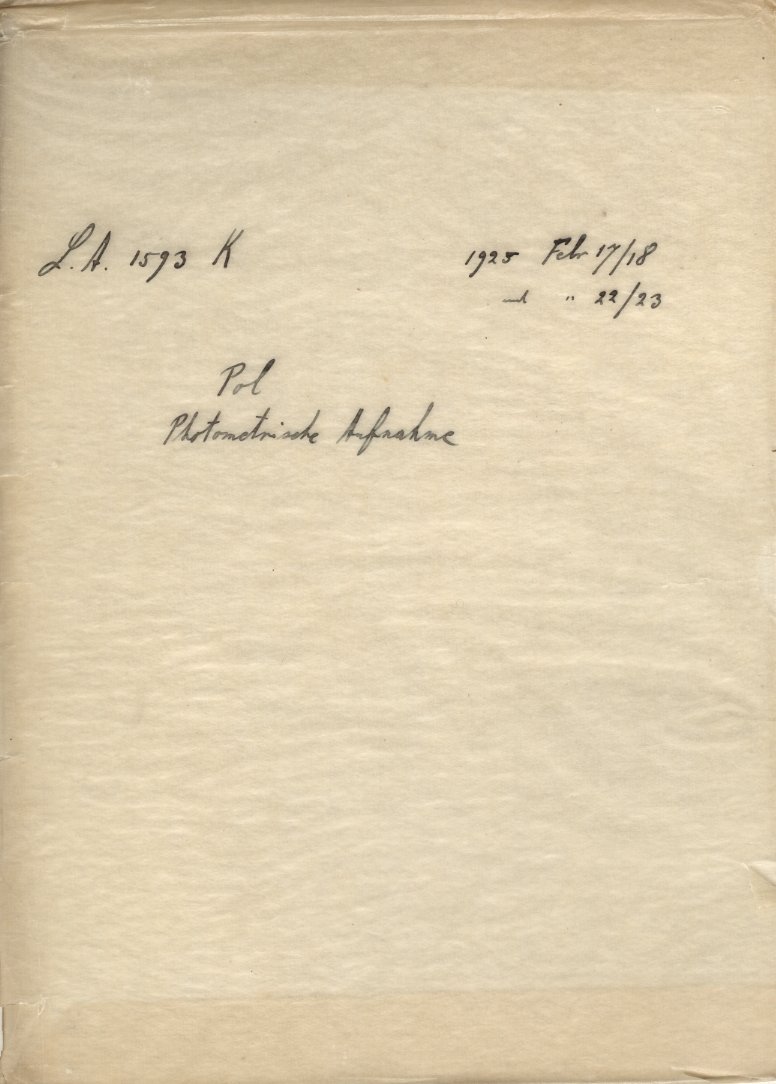 L.A. 1593 K
1925 Febr 17/18
und " 22/23
Pol
Photometrische Aufnahme